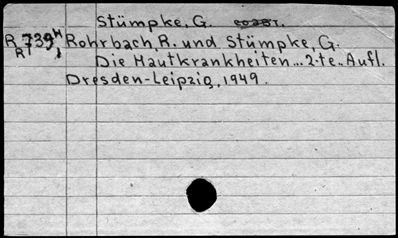 Stümpke, G.
R 739 H Rohrbach, R. und Stümpke, G.
R 1 Die Hautkrankheiten ... 2-te.. Aufl.
Dresden-Leipzig, 1949.